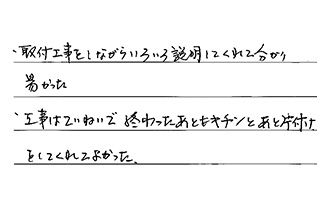 ・取付工事をしながらいろいろ説明してくれて分かり
易かった
・工事はていねいで 終わったあともキチンとあと片付け
をしてくれてよかった。